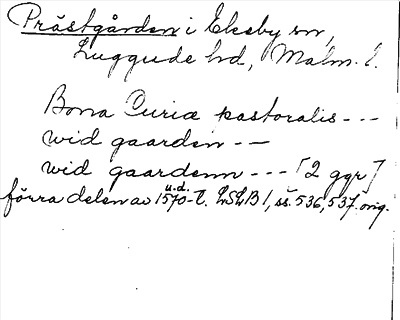 Prästgården i Ekeby sn,
Luggude hd, Malm. l.
Bona Curiæ pastoralis - - -
wid gaarden - -
wid gaardenn - - - [2 ggr]
förra delen av 1570-t. u.d. LSLB 1, ss. 536, 537. orig.